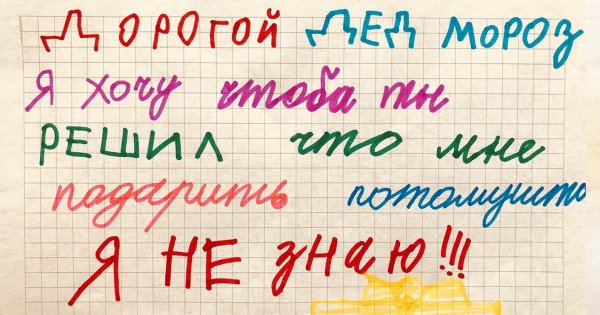 ДОРОГОЙ ДЕД МОРОЗ
Я хочу чтоба ты
РЕШИЛ что мне
подарить потомушто
Я НЕ знаю!!!